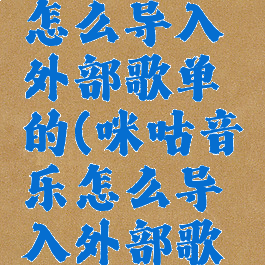 怎么导入
外部歌单
的(咪咕音
乐怎么导
入外部歌